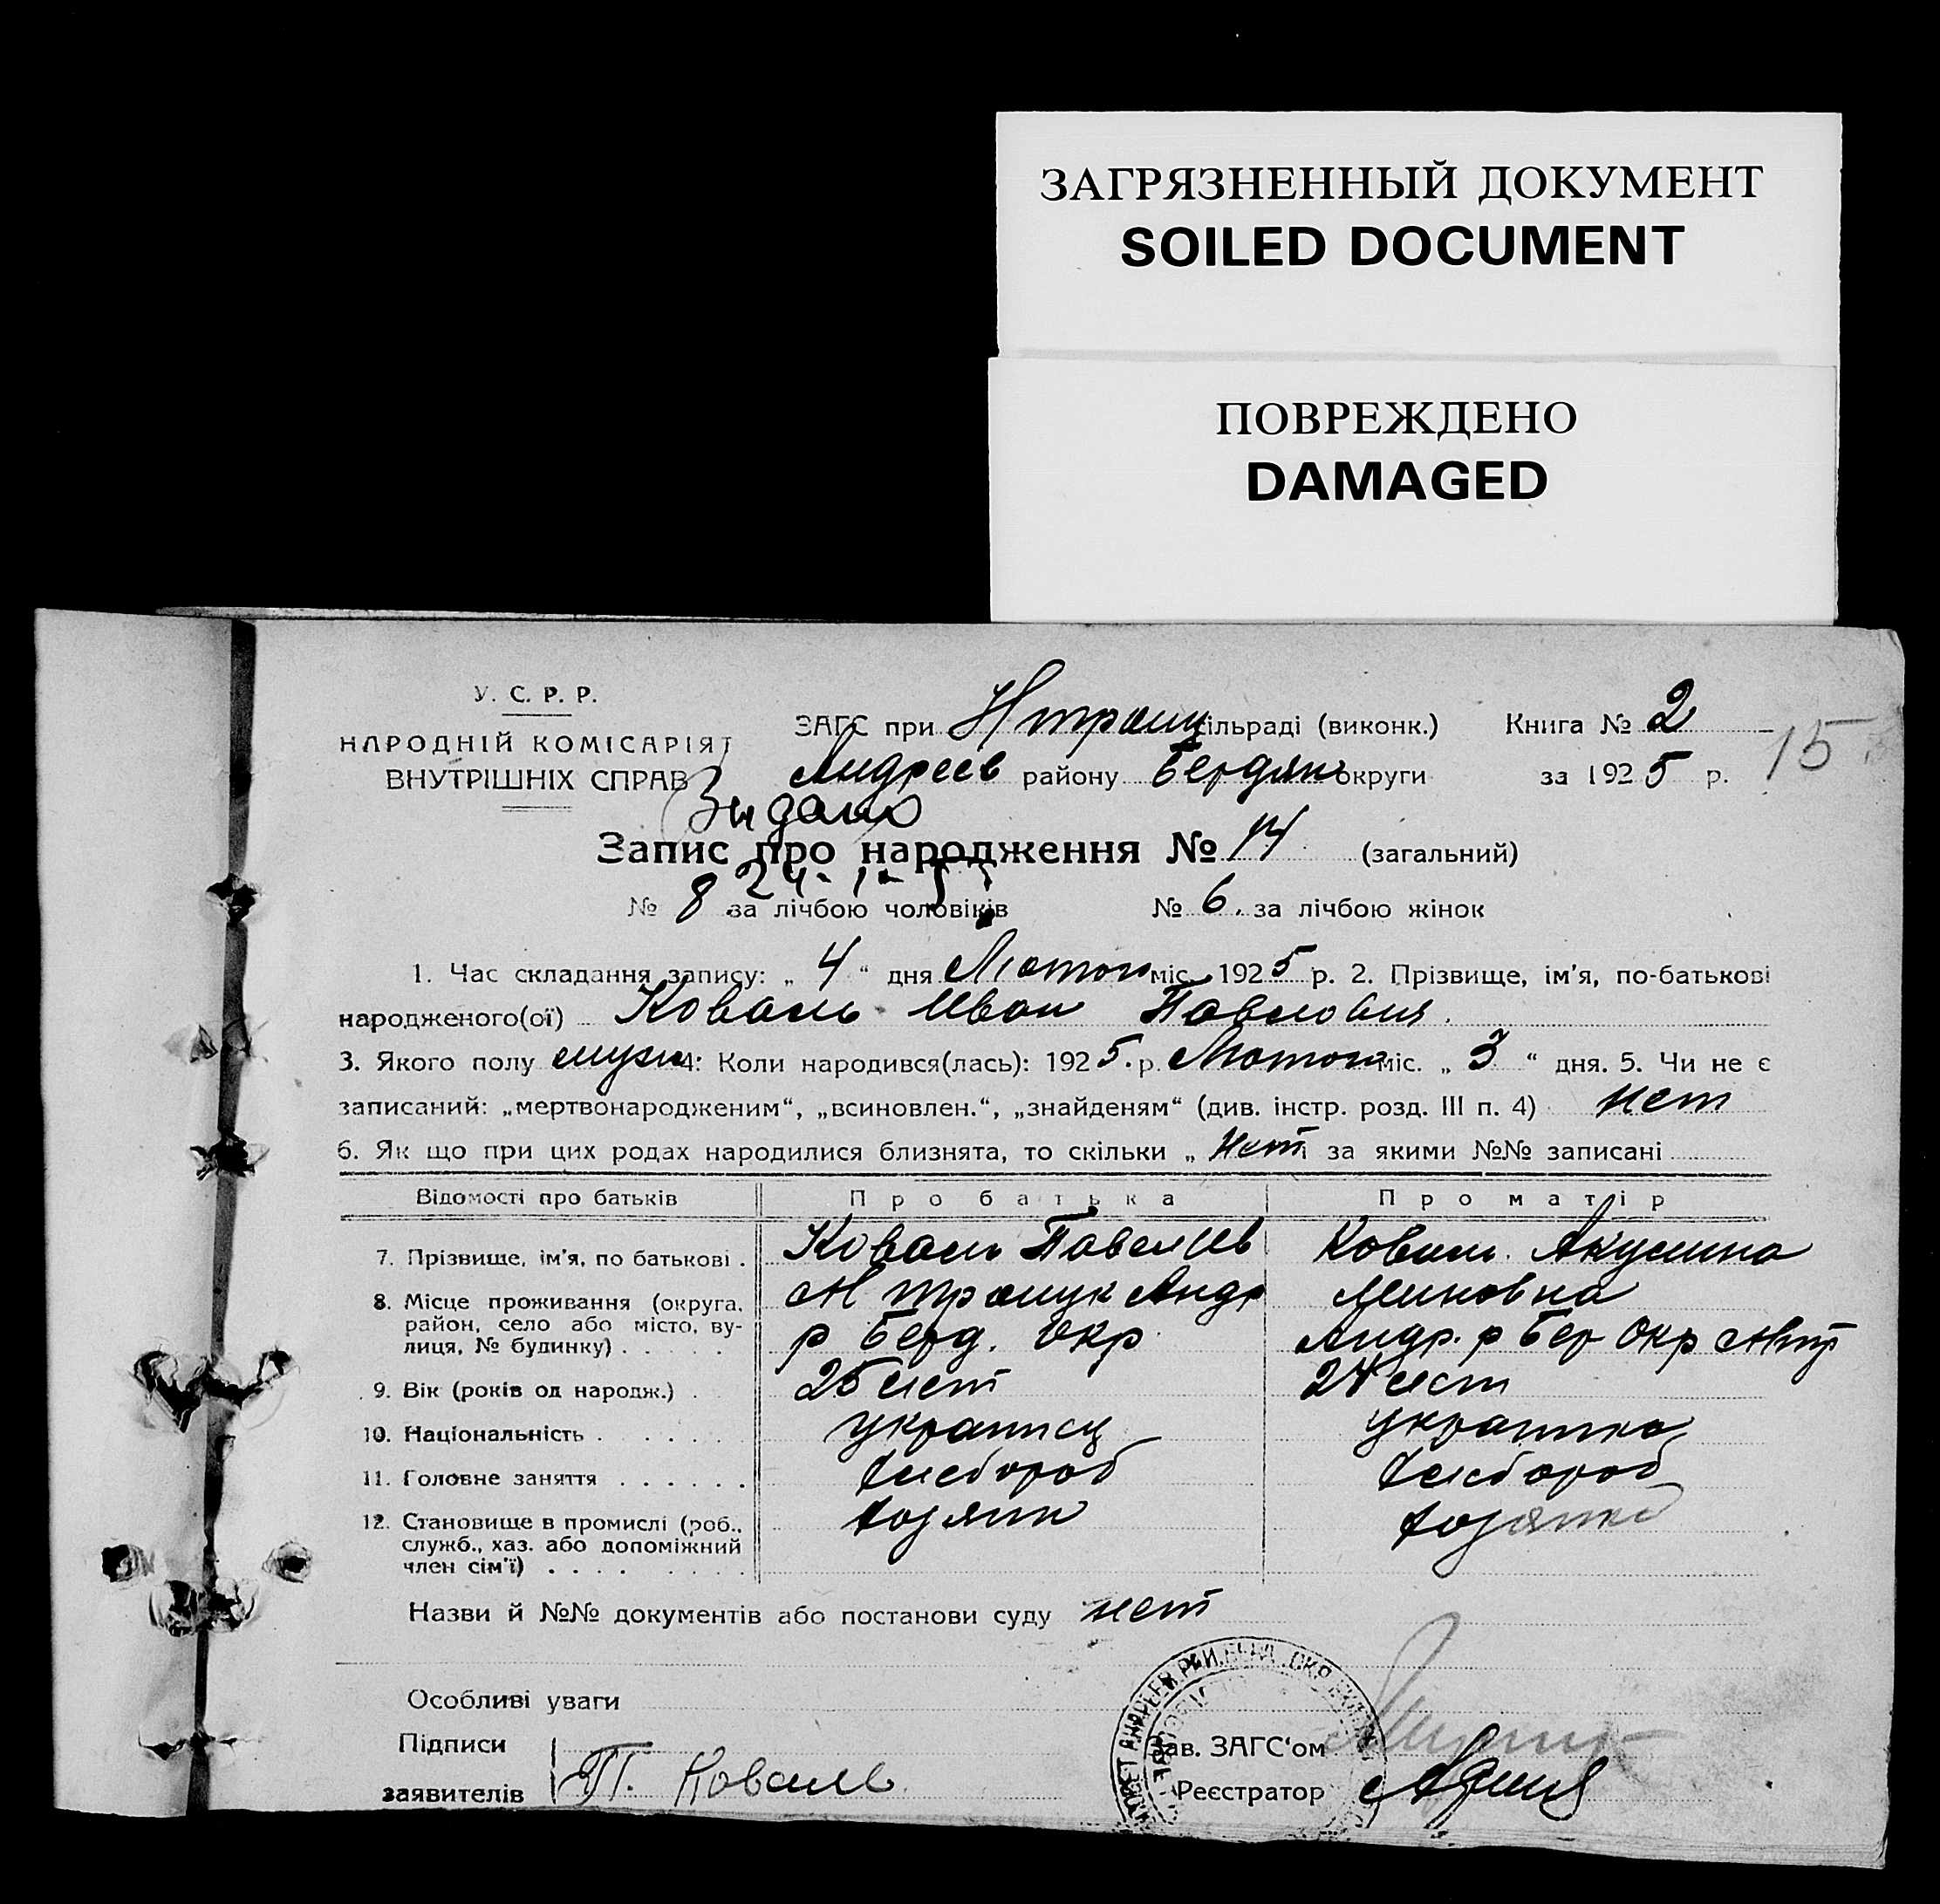 ЗАГРЯЗНЕННЫЙ ДОКУМЕНТ
SOILED DOCUMENT
ПОВРЕЖДЕНО
DAMAGED
У. С. Р. Р.
НАРОДНІЙ КОМІСАРІЯТ
ВНУТРІШНІХ СПРАВ
ЗАГС при сільраді (виконк.) Книга № 2
15
Андреев району Бердян округи за 1925 р.
Запис про народження № 14 (загальний)
№ 8 за лічбою чоловіків № 6. за лічбою жінок
1. Час складання запису: „ 4 “ дня Лютого міс. 1925 р. 2. Прізвище, ім'я, по-батькові
народженого(ої) Коваль Иван Павлович
3. Якого полу муж 4: Коли народився(лась): 1925. р. Лютого міс. „ 3 “ дня. 5. Чи не є
записаний: „мертвонародженим“, „всиновлен.“, „знайденям“ (див. інстр. розд. III п. 4) нет
6. Як що при цих родах народилися близнята, то скільки „ нет за якими №№ записані
Відомості про батьків Про батька Про матір
7. Прізвище, ім'я, по батькові . Коваль Павел Ив Коваль Акулина
8. Місце проживання (округа, Андр Миновна
район, село або місто, ву- р Берд. Окр Андр. р Бер Окр
лиця, № будинку) . . . . .
9. Вік (років од народж.) . 25 лет 24 лет
10. Національність . . . . . украинец украинка
11. Головне заняття . . . . . . хлебороб хлебороб
12. Становище в промислі (роб., хозяин хозяйка
служб., хаз. або допоміжний
член сім'ї) . . . . . . . .
Назви й №№ документів або постанови суду нет
Особливі уваги
Підписи
заявителів П. Коваль
Зав. ЗАГС'ом
Реєстратор